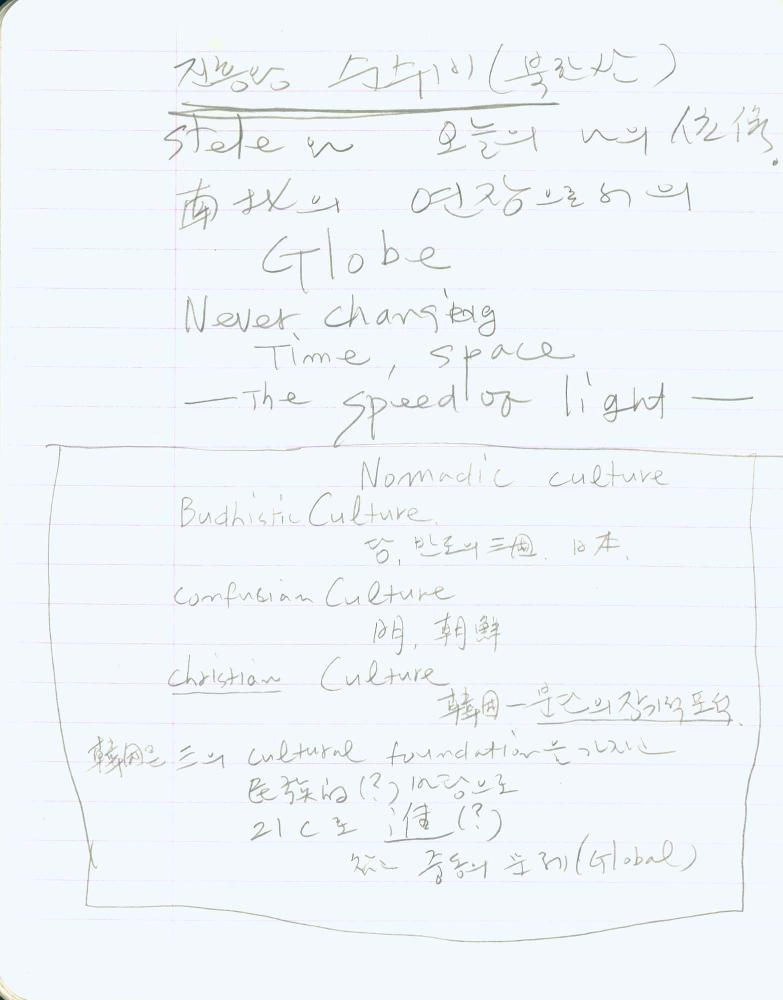 진흥왕 순수비 (북한산)
stele in 오늘의 n의
의 연장으로서의
Globe
Never changing
Time, space
— The speed of light —
Nomadic culture
Budhistic Culture.
당, 반도의 三国. 日本.
Confusian Culture
明, 朝鮮
Christian Culture
韓国 — 분단의 장기적 포석.
韓国은 三의 cultural foundation을 가지고
民族的 (?) 바탕으로
21 C로 進 (?)
중동의 문제 (Global)